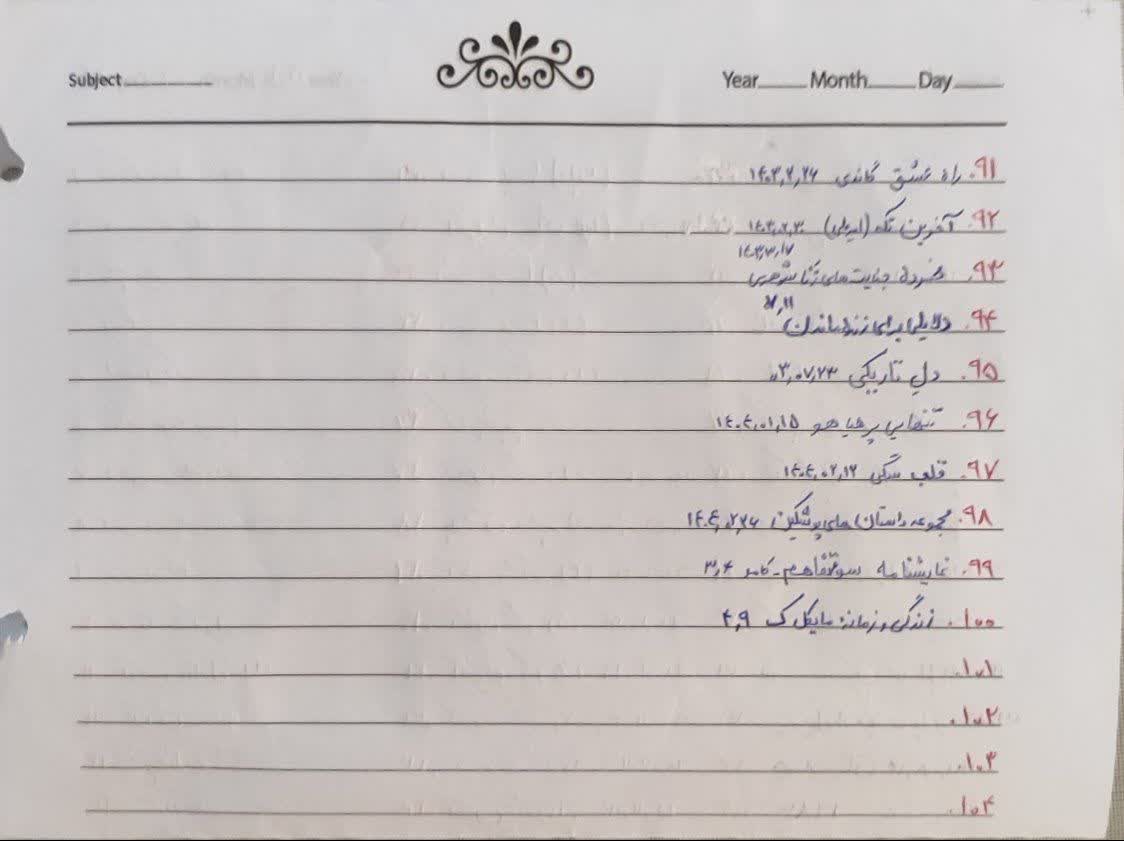 Subject Year Month Day
۹۱. راه عشق گاندی ۱۴۰۳,۲,۲۶
۹۲. آخرین تکه (امیلی) ۱۴۰۳,۲,۳۰
۱۴۰۳,۳,۱۷
۹۳. خرده جنایت‌های زناشوهری
۹۴. دلایلی برای زنده ماندن
۹۵. دلِ تاریکی ۰۳,۰۷,۲۳
۹۶. تنهایی پرهیاهو ۱۴۰۴,۰۱,۱۵
۹۷. قلب سگی ۱۴۰۴,۰۲,۱۲
۹۸. مجموعه داستان‌های پوشکین ۱۴۰۴,۰۲,۲۶
۹۹. نمایشنامه سوءتفاهم - کامو ۳,۴
۱۰۰. زندگی و زمانه مایکل ک ۴,۹
۱۰۱.
۱۰۲.
۱۰۳.
۱۰۴.